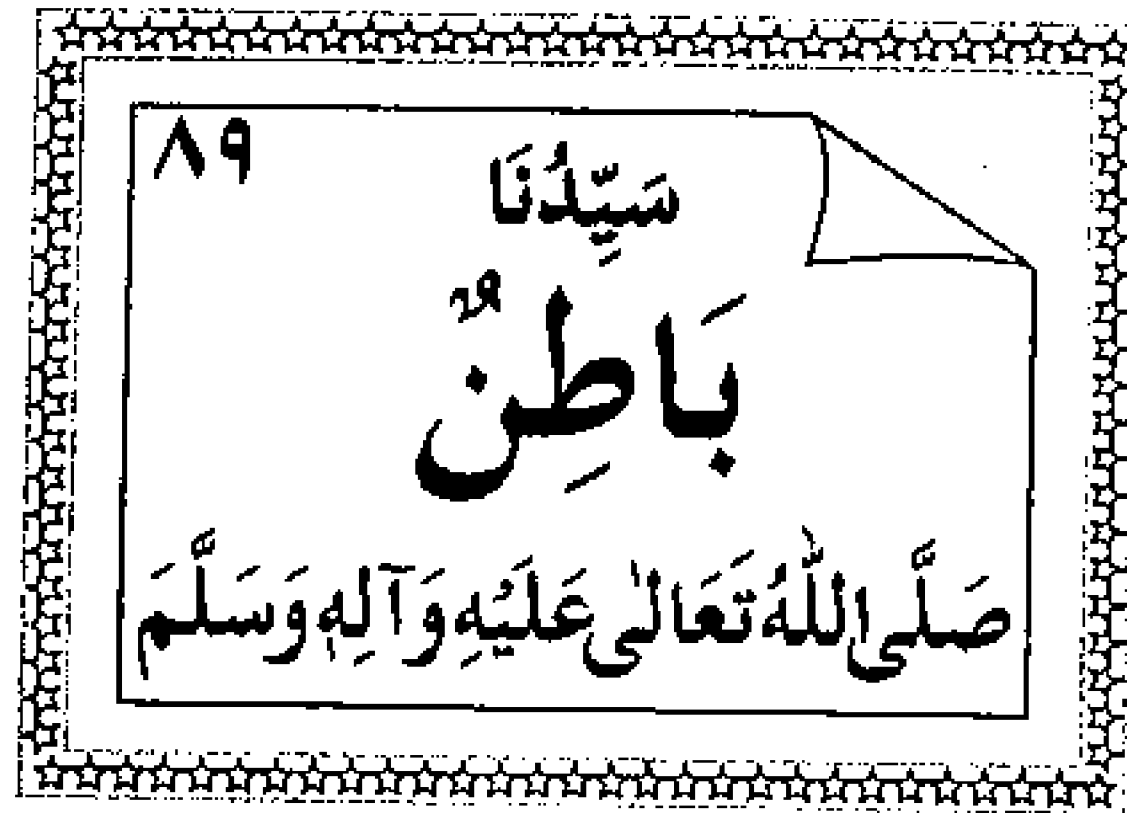 ٨٩
سَیِّدُنَا
بَاطِنٌ
صَلَّی اللّٰهُ تَعَالٰی عَلَیْهِ وَآلِهٖ وَسَلَّمَ